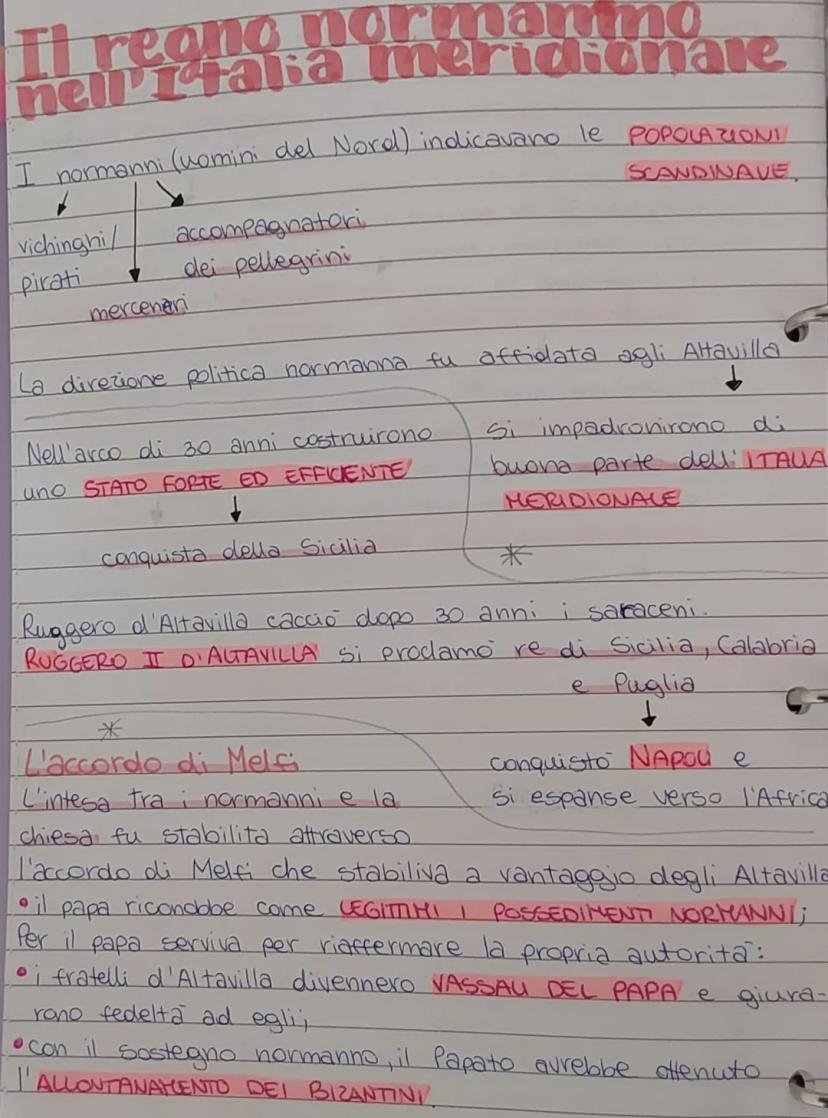 Il regno normanno
nell'Italia meridionale
I normanni (uomini del Nord) indicavano le POPOLAZIONI
SCANDINAVE.
vichinghi/
pirati
accompagnatori
dei pellegrini
mercenari
La direzione politica normanna fu affidata agli Altavilla
Nell'arco di 30 anni costruirono
uno STATO FORTE ED EFFICIENTE
conquista della Sicilia
si impadronirono di
buona parte dell'ITALIA
MERIDIONALE
*
Ruggero d'Altavilla cacciò dopo 30 anni i saraceni.
RUGGERO II D'ALTAVILLA si proclamò re di Sicilia, Calabria
e Puglia
conquistò NAPOLI e
si espanse verso l'Africa
*
L'accordo di Melfi
L'intesa tra i normanni e la
chiesa fu stabilita attraverso
l'accordo di Melfi che stabiliva a vantaggio degli Altavilla
• il papa riconobbe come LEGITTIMI I POSSEDIMENTI NORMANNI;
Per il papa serviva per riaffermare la propria autorità:
• i fratelli d'Altavilla divennero VASSALLI DEL PAPA e giura-
rono fedeltà ad egli;
• con il sostegno normanno, il Papato avrebbe ottenuto
l'ALLONTANAMENTO DEI BIZANTINI.